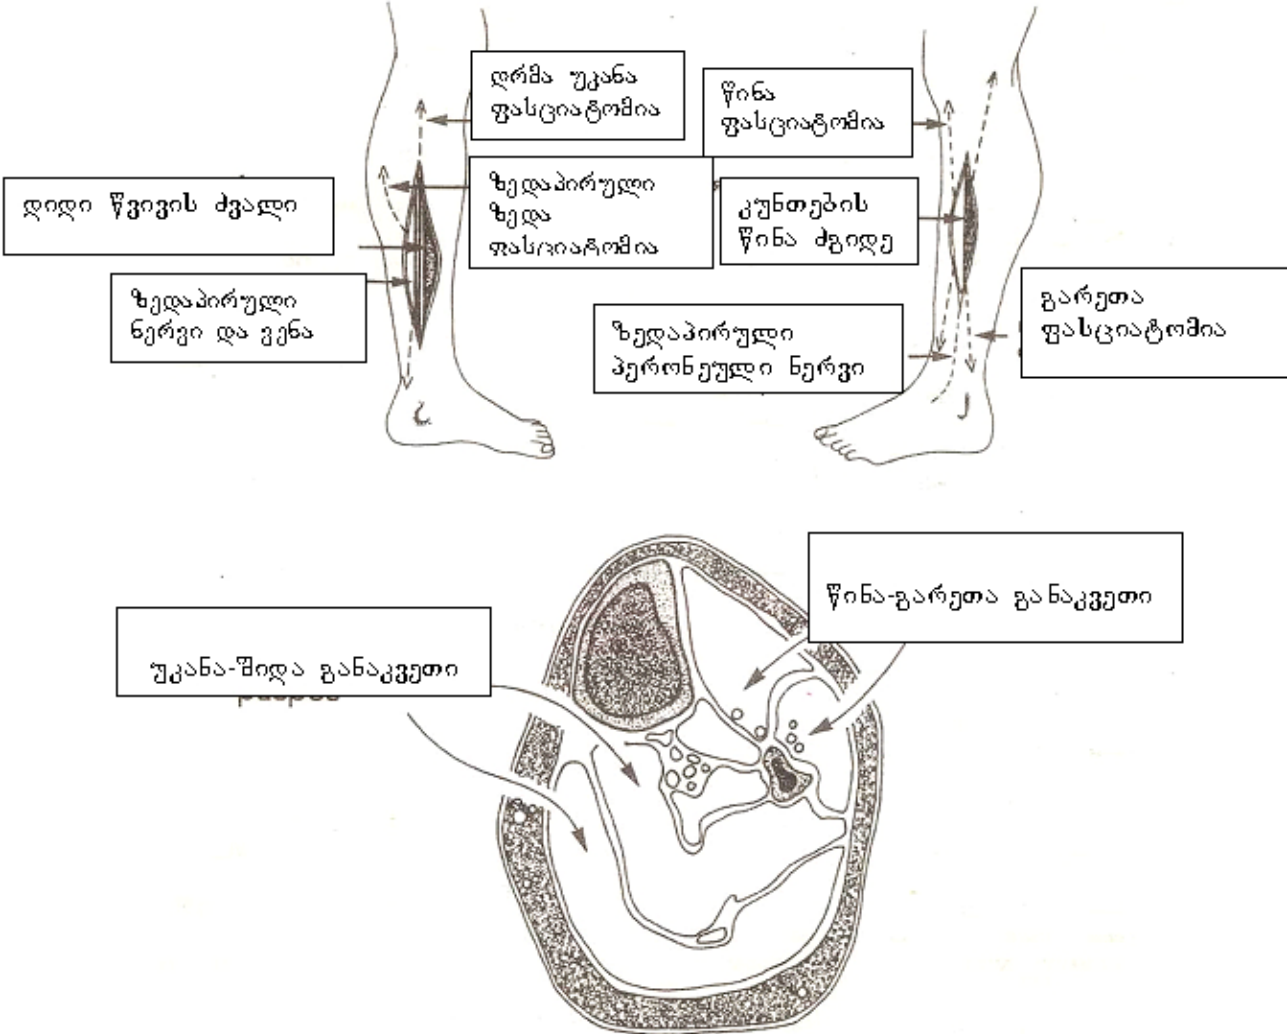 ღრმა უკანა
ფასციატომია
წინა
ფასციატომია
ზედაპირული
ზედა
ფასციატომია
დიდი წვივის ძვალი
კუნთების
წინა ძგიდე
ზედაპირული
ნერვი და ვენა
ზედაპირული
პერონეული ნერვი
გარეთა
ფასციატომია
წინა-გარეთა განაკვეთი
უკანა-შიდა განაკვეთი